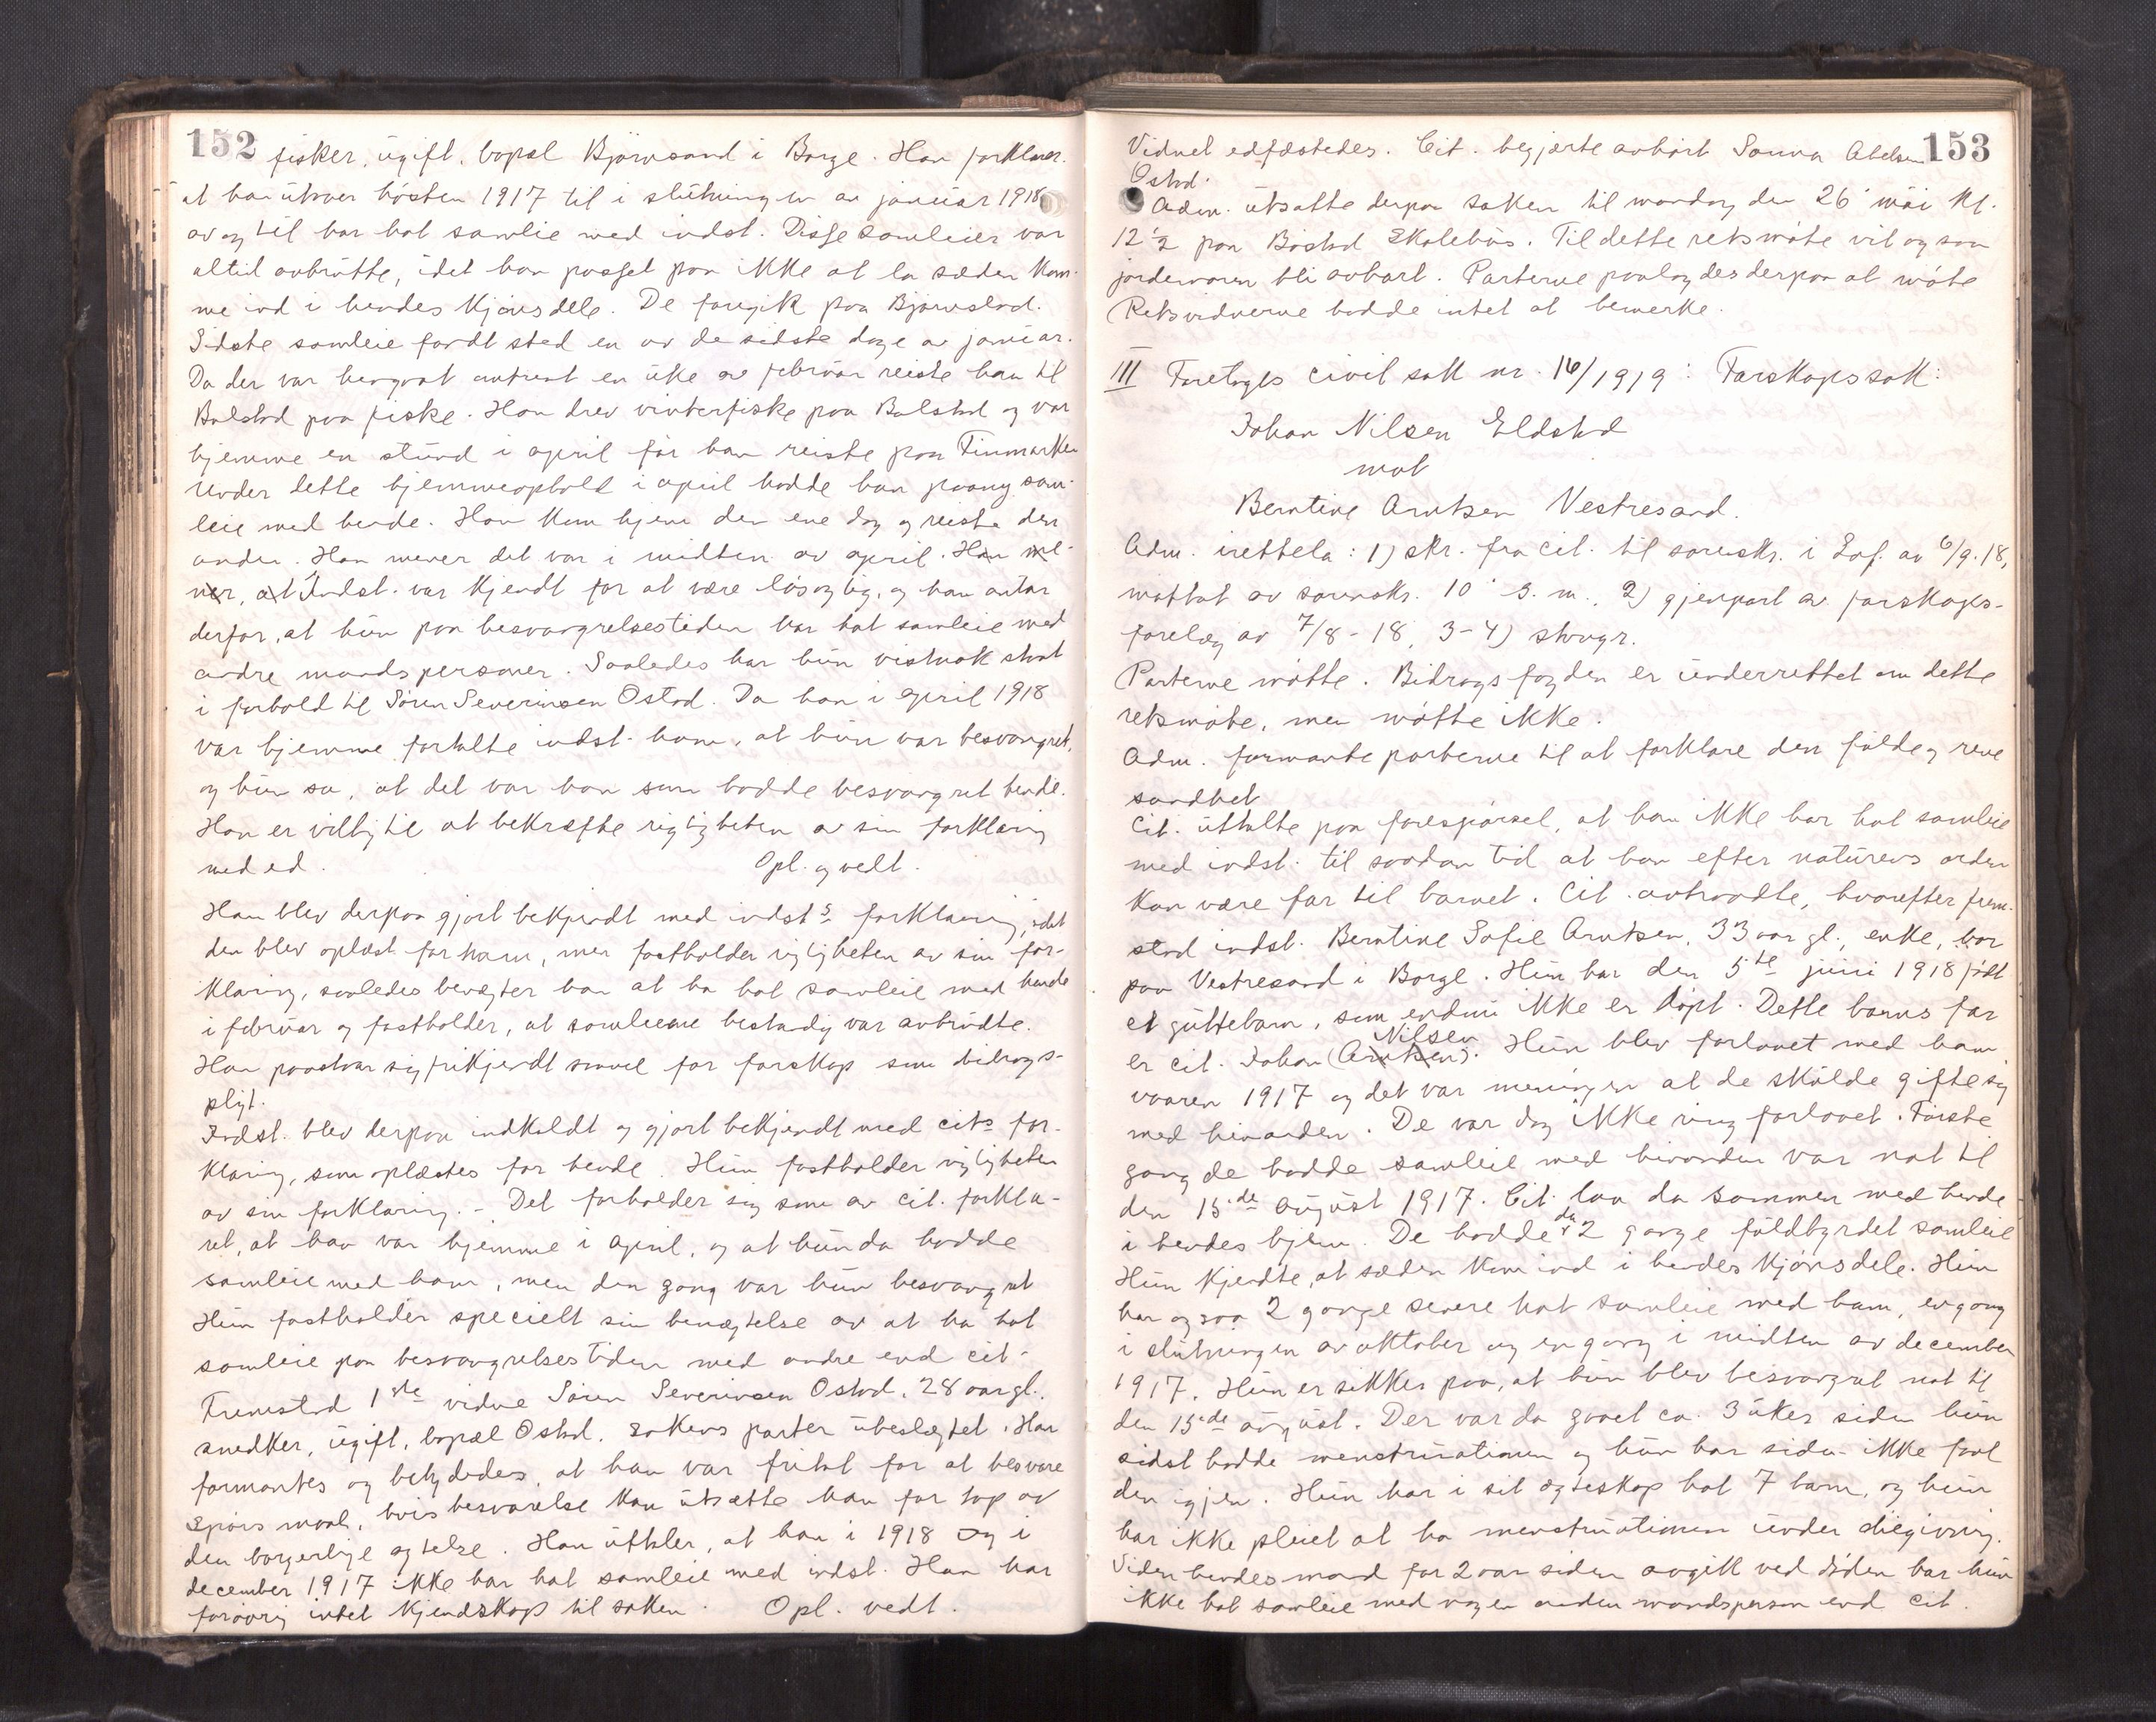 152
fisker, ugift, bopæl Bjørnsand i Borge. Han forklarer.
at han utover høsten 1917 til i slutningen av januar 1918
av og til har hat samleie med indst. Disse samleier var
altid avbrutte, idet han passet paa ikke at la sæden kom-
me ind i hendes kjønsdele. De foregik paa Bjørnstad.
Sidste samleie fandt sted en av de sidste dage av januar.
Da der var hengaat omtrent en uke av februar reiste han til
Balstad paa fiske. Han drev vinterfiske paa Balstad og var
hjemme en stund i april før han reiste paa Finmarken
Under dette hjemmeophold i april hadde han paany sam-
leie med hende. Han kom hjem den ene dag og reiste den
anden. Han mener det var i midten av april. Han me-
ner, at Indst. var kjendt for at være løsagtig, og han antar
derfor, at hun paa besvangrelsestiden har hat samleie med
andre mandspersoner. Saaledes har hun vistnok staat
i forhold til Søren Severinsen Ostad. Da han i april 1918
var hjemme fortalte indst. ham, at hun var besvangret,
og hun sa, at det var han som hadde besvangret hende.
Han er villig til at bekræfte rigtigheten av sin forklaring
med ed. Opl. og vedt.
Han blev derpaa gjort bekjendt med indsts forklaring, idet
den blev oplæst for ham, men fastholder rigtigheten av sin for-
klaring, saaledes benegter han at ha hat samleie med hende
i februar og fastholder, at samleiene bestandig var avbrudte.
Han paastaar sig frikjendt saavel for farskap som bidrags-
pligt.
Indst. blev derpaa indkaldt og gjort bekjendt med cits for-
klaring, som oplæstes for hende. Hun fastholder rigtigheten
av sin forklaring. - Det forholder sig som av cit. forkla-
ret, at han var hjemme i april, og at hun da hadde
samleie med ham, men den gang var hun besvangret
Hun fastholder specielt sin benegtelse av at ha hat
samleie paa besvangrelsestiden med andre end cit.
Fremstod 1ste vidne Søren Severinsen Ostad, 28 aar gl.,
snedker, ugift, bopæl Ostad. Sakens parter ubeslegtet. Han
formantes og betydedes, at han var fritat for at besvare
spørsmaal, hvis besvarelse kan utsætte ham for tap av
den borgerlige agtelse. Han uttaler, at han i 1918 og i
december 1917 ikke har hat samleie med indst. Han har
forøvrig intet kjendskap til saken. Opl. vedt.
153
Vidnet edfæstedes. Cit. begjærte avhørt Abelsen
Ostad.
Adm. utsatte derpaa saken til mandag den 26' mai kl.
12½ paa Bøstad Skolehus. Til dette retsmøte vil ogsaa
jordemoren bli avhørt. Parterne paalagdes derpaa at møte
Retsvidnerne hadde intet at bemerke.
III Foretages civil sak nr. 16/1919: Farskapssak:
Johan Nilsen Eldstad
mot
Berntine Arntsen Vestresand.
Adm. irettela: 1) skr. fra cit. til sorenskr. i Lof. av 6/9.18,
mottat av sorenskr. 10' s. m., 2) gjenpart av farskaps-
forelæg av 7/8-18, 3-4) stvngr.
Parterne møtte. Bidragsfogden er underrettet om dette
retsmøte, men møtte ikke.
Adm. formante parterne til at forklare den fulde og rene
sandhet
Cit. uttalte paa forespørsel, at han ikke har hat samleie
med indst. til saadan tid at han efter naturens orden
kan være far til barnet. Cit. avtraadte, hvorefter frem-
stod indst. Berntine Sofie Arntsen, 33 aar gl., enke, bor
paa Vestresand i Borge. Hun har den 5te juni 1918 født
et guttebarn, som endnu ikke er døpt. Dette barns far
er cit. Johan (Arntsen) Nilsen. Hun blev forlovet med ham
vaaren 1917 og det var meningen at de skulde gifte sig
med hinanden. De var dog ikke ring forlovet. Første
gang de hadde samleie med hinanden var nat til
den 15de august 1917. Cit. laa da sammen med hende
i hendes hjem. De hadde da 2 gange fuldbyrdet samleie
Hun kjendte, at sæden kom ind i hendes kjønsdele. Hun
har ogsaa 2 gange senere hat samleie med ham, en gang
i slutningen av oktober og en gang i midten av december
1917. Hun er sikker paa, at hun blev besvangret nat til
den 15de august. Der var da gaaet ca. 3 uker siden hun
sidst hadde menstruationen og hun har siden ikke faat
den igjen. Hun har i sit egteskap hat 7 barn, og hun
har ikke pleiet at ha menstruationen under diegivning.
Siden hendes mand for 2 aar siden avgik ved døden har hun
ikke hat samleie med nogen anden mandsperson end cit.